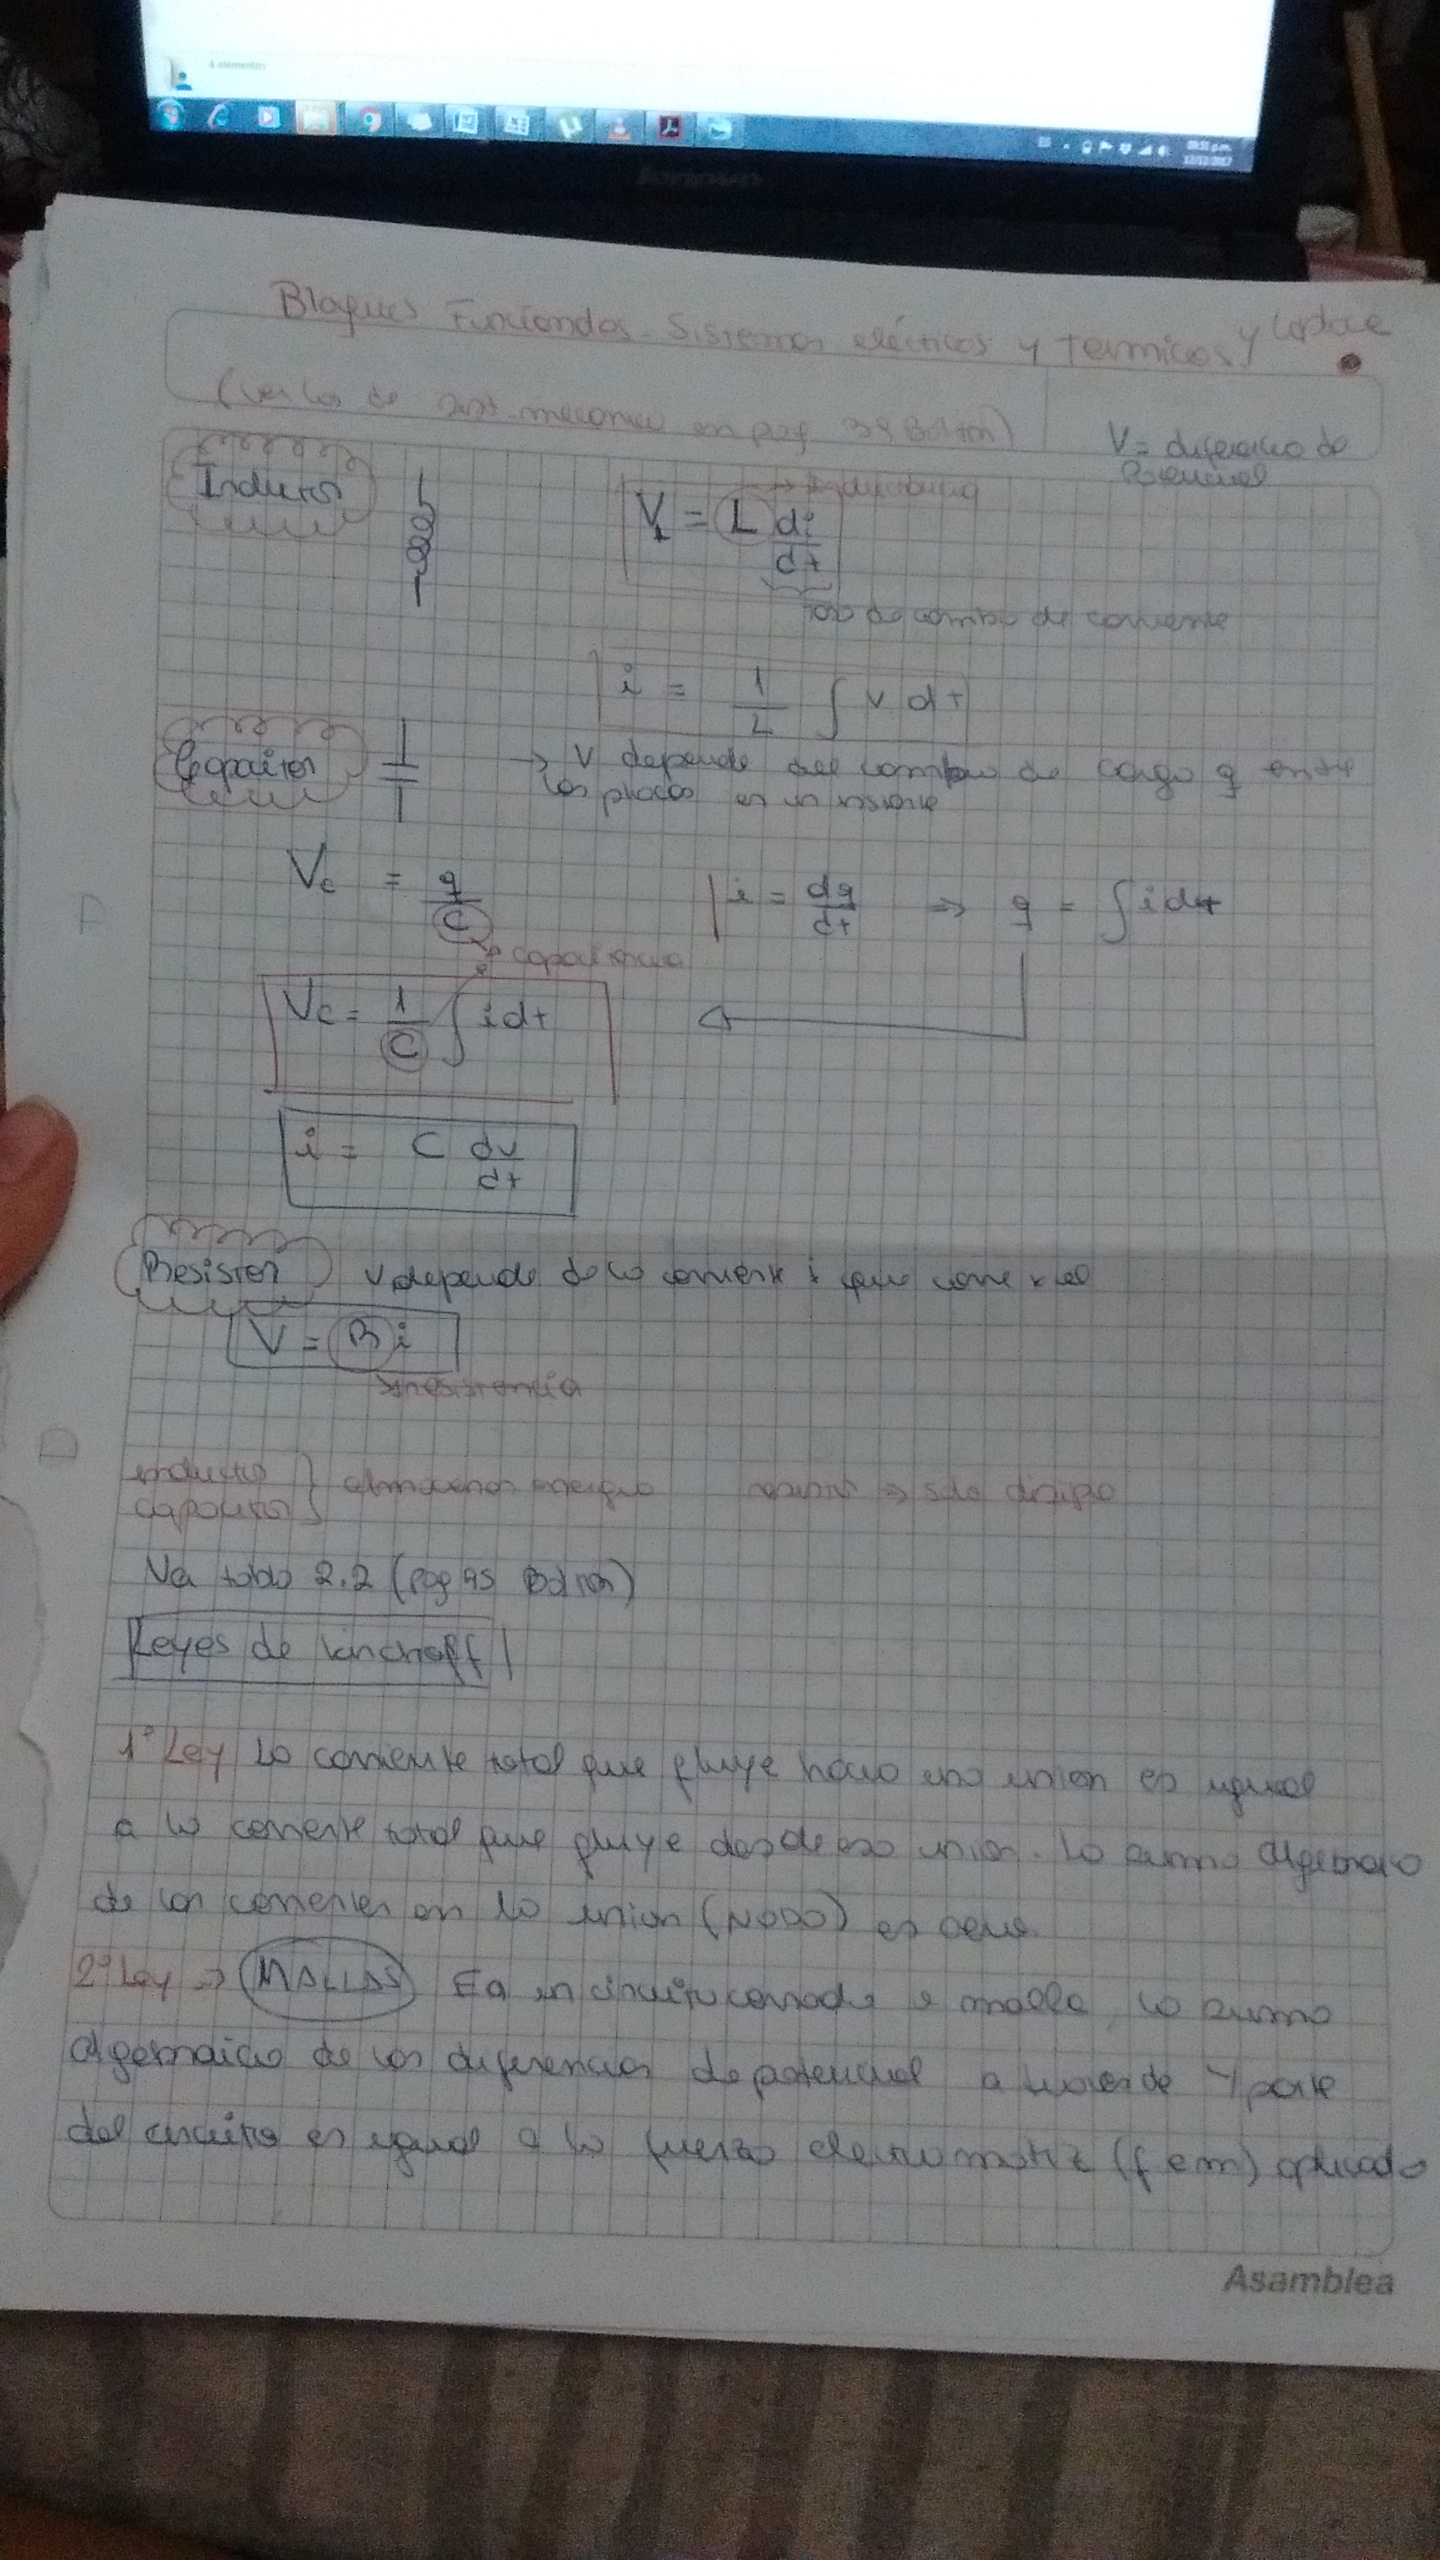 4 elementos
09:51 p.m.
12/12/2017
lenovo
Bloques Funcionales - Sistemas eléctricos y termicos y Laplace
(ver los de sist. mecanico en pag 39 Bolton)
V = diferencia de
Potencial
Inductor
V_L = L di/dt → Inductancia
tasa de cambio de corriente
i = 1/L ∫ v dt
Capacitor → V depende del cambio de carga q entre
las placas en un instante
Vc = q/C → capacitancia
i = dq/dt ⇒ q = ∫ i dt
Vc = 1/C ∫ i dt
i = C dv/dt
Resistor V depende de la corriente i que corre x el
V = R i
resistencia
inductor
capacitor } almacenan energia resistor ⇒ solo disipa
Ver tabla 2.2 (pag 45 Bolton)
Leyes de kirchoff
1º Ley La corriente total que fluye hacia una union es igual
a la corriente total que fluye desde esa union. La suma algebraica
de las corrientes en la union (NODO) es cero.
2º Ley → MALLAS En un circuito cerrado o malla, la suma
algebraica de las diferencias de potencial a traves de c/parte
del circuito es igual a la fuerza electromotriz (f e m) aplicada
Asamblea